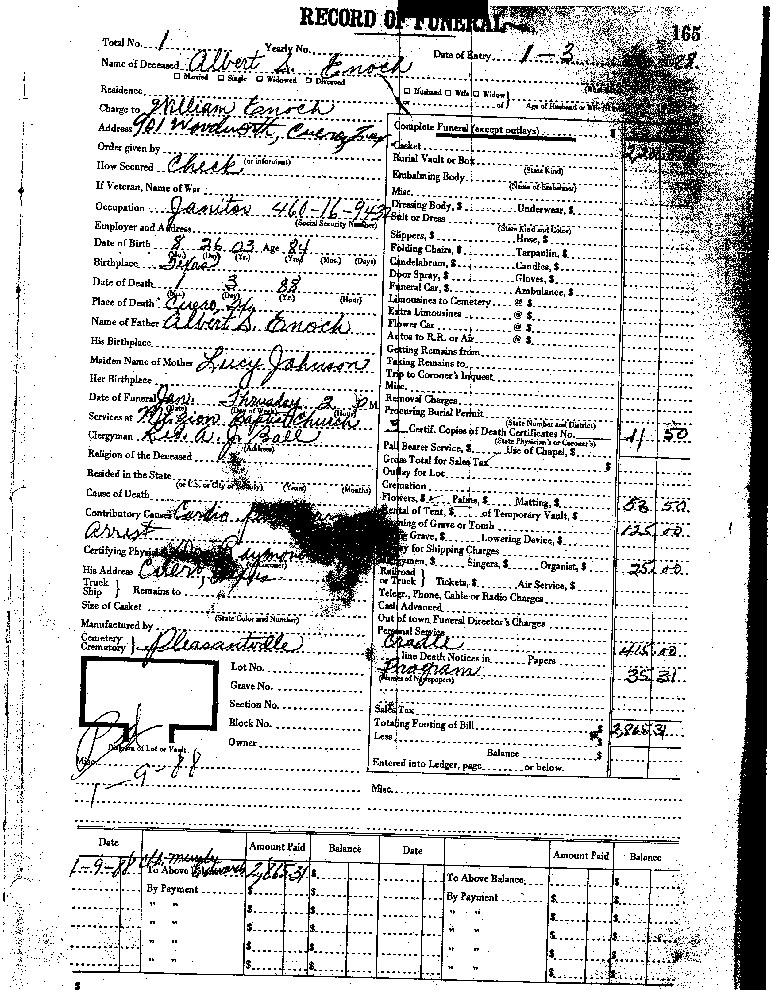 RECORD OF FUNERAL
165
Total No. 1 Yearly No. Date of Entry 1-3
Name of Deceased Albert S. Enoch
Married Single Widowed Divorced
Residence Husband Wife Widow of
Charge to William Enoch
Address 901 Wordworth, Cuero, Tex
Complete Funeral (except outlays) $
Order given by
Casket
How Secured Check (or informant)
Burial Vault or Box (State Kind)
Embalming Body (Name of Embalmer)
If Veteran, Name of War
Misc.
Occupation Janitor (Social Security Number)
Dressing Body, $ Underwear, $
Suit or Dress (State Kind and Color)
Employer and Address
Slippers, $ Hose, $
Date of Birth 8 26 03 Age 84
(Mo.) (Day) (Yr.) (Yrs.) (Mos.) (Days)
Folding Chairs, $ Tarpaulin, $
Birthplace Texas
Candelabrum, $ Candles, $
Door Spray, $ Gloves, $
Date of Death 1 3 88
(Day) (Yr.) (Hour)
Funeral Car, $ Ambulance, $
Limousines to Cemetery @ $
Place of Death Cuero,
Extra Limousines @ $
Flower Car @ $
Name of Father Albert S. Enoch
Autos to R.R. or Air @ $
His Birthplace
Getting Remains from
Taking Remains to
Maiden Name of Mother Lucy Johnson
Trip to Coroner's Inquest
Her Birthplace
Misc.
Removal Charges
Date of Funeral Jan. Thursday 2 P M.
Procuring Burial Permit (State Number and District)
Services at Mt Zion Baptist Church
3 Certif. Copies of Death Certificates No. 11 50
(State Physician's or Coroner's)
Clergyman Rev. A. J. Ball (Address)
Pall Bearer Service, $ Use of Chapel, $
Religion of the Deceased
Gross Total for Sales Tax $
Outlay for Lot
Resided in the State
(or U.S. or City or County) (Years) (Months)
Cremation
Cause of Death
Flowers, $ Palms, $ Matting, $ 50
Contributory Causes Cardio
Rental of Tent, $ of Temporary Vault, $
Arrest
of Grave or Tomb 125 00
Grave, $ Lowering Device, $
Certifying Raymond
for Shipping Charges
Singers, $ Organist, $ 25 00
His Address Cuero, Texas
Railroad or Truck Tickets, $ Air Service, $
Truck Ship Remains to
Telegr., Phone, Cable or Radio Charges
Size of Casket (State Color and Number)
Cash Advanced
Out of town Funeral Director's Charges
Manufactured by
Personal Service
Cemetery Crematory Pleasantville
Cradle 415 00
line Death Notices in Papers
Program 35 31
(Names of Newspapers)
Lot No.
Grave No.
Section No.
Sales Tax
Block No.
Totaling Footing of Bill $ 2,865 31
Less $
Diagram of Lot or Vault
Owner
Balance $
Misc.
Entered into Ledger, page or below.
1-9-88
Misc.
Date Amount Paid Balance Date Amount Paid Balance
1-9-88 To Above 2,865 31 $ To Above Balance $
By Payment $ $ By Payment $
" " $ $ " " $
" " $ $ " " $
" " $ $ " " $
" " $ $ " " $
$